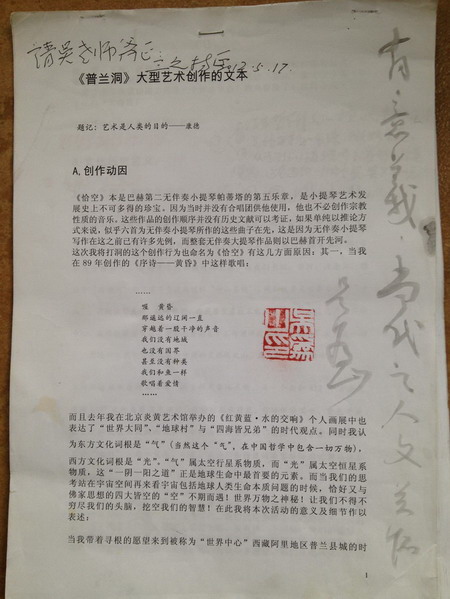 请吴老师斧正
17.5.17.
《普兰洞》大型艺术创作的文本
题记：艺术是人类的目的——康德
A,创作动因
《恰空》本是巴赫第二无伴奏小提琴帕蒂塔的第五乐章，是小提琴艺术发
展史上不可多得的珍宝，因为当时并没有合唱团供他使用，他也不必创作宗教
性质的音乐。这些作品的创作顺序并没有历史文献可以考证，如果单纯以推论方
式来说，似乎六首为无伴奏小提琴所作的这些曲子在先，这是因为无伴奏小提琴
写作在这之前已有许多先例，而整套无伴奏大提琴作品则以巴赫首开先河。
这次我将打洞的这个创作行为也命名为《恰空》有这几方面原因：其一，当我
在 89 年创作的《序诗——黄昏》中这样歌唱：
……
噢 黄昏
那遥远的辽阔一直
穿越着一股干净的声音
我们没有地域
也没有国界
甚至没有种类
我们和鱼一样
歌唱着爱情
……
而且去年我在北京炎黄艺术馆举办的《红黄蓝·水的交响》个人画展中也
表达了“世界大同”、“地球村”与“四海皆兄弟”的时代观点。同时我认
为东方文化词根是“气”(当然这个“气”，在中国哲学中包含一切万物)，
西方文化词根是“光”，“气”属太空行星系物质，而“光”属太空恒星系
物质，这“一阴一阳之道”正是地球生命中最首要的元素。而当我们的思
考站在宇宙空间再来看宇宙包括地球人类生命本质问题的时候，恰好又与
佛家思想的四大皆空的“空”不期而遇！世界万物之神秘！让我们不得不
穷尽我们的头脑，挖空我们的智慧！在此我将本次活动的意义及细节作以
表述：
当我带着寻根的愿望来到被称为“世界中心”西藏阿里地区普兰县城的时
1
有意义·当代之人文